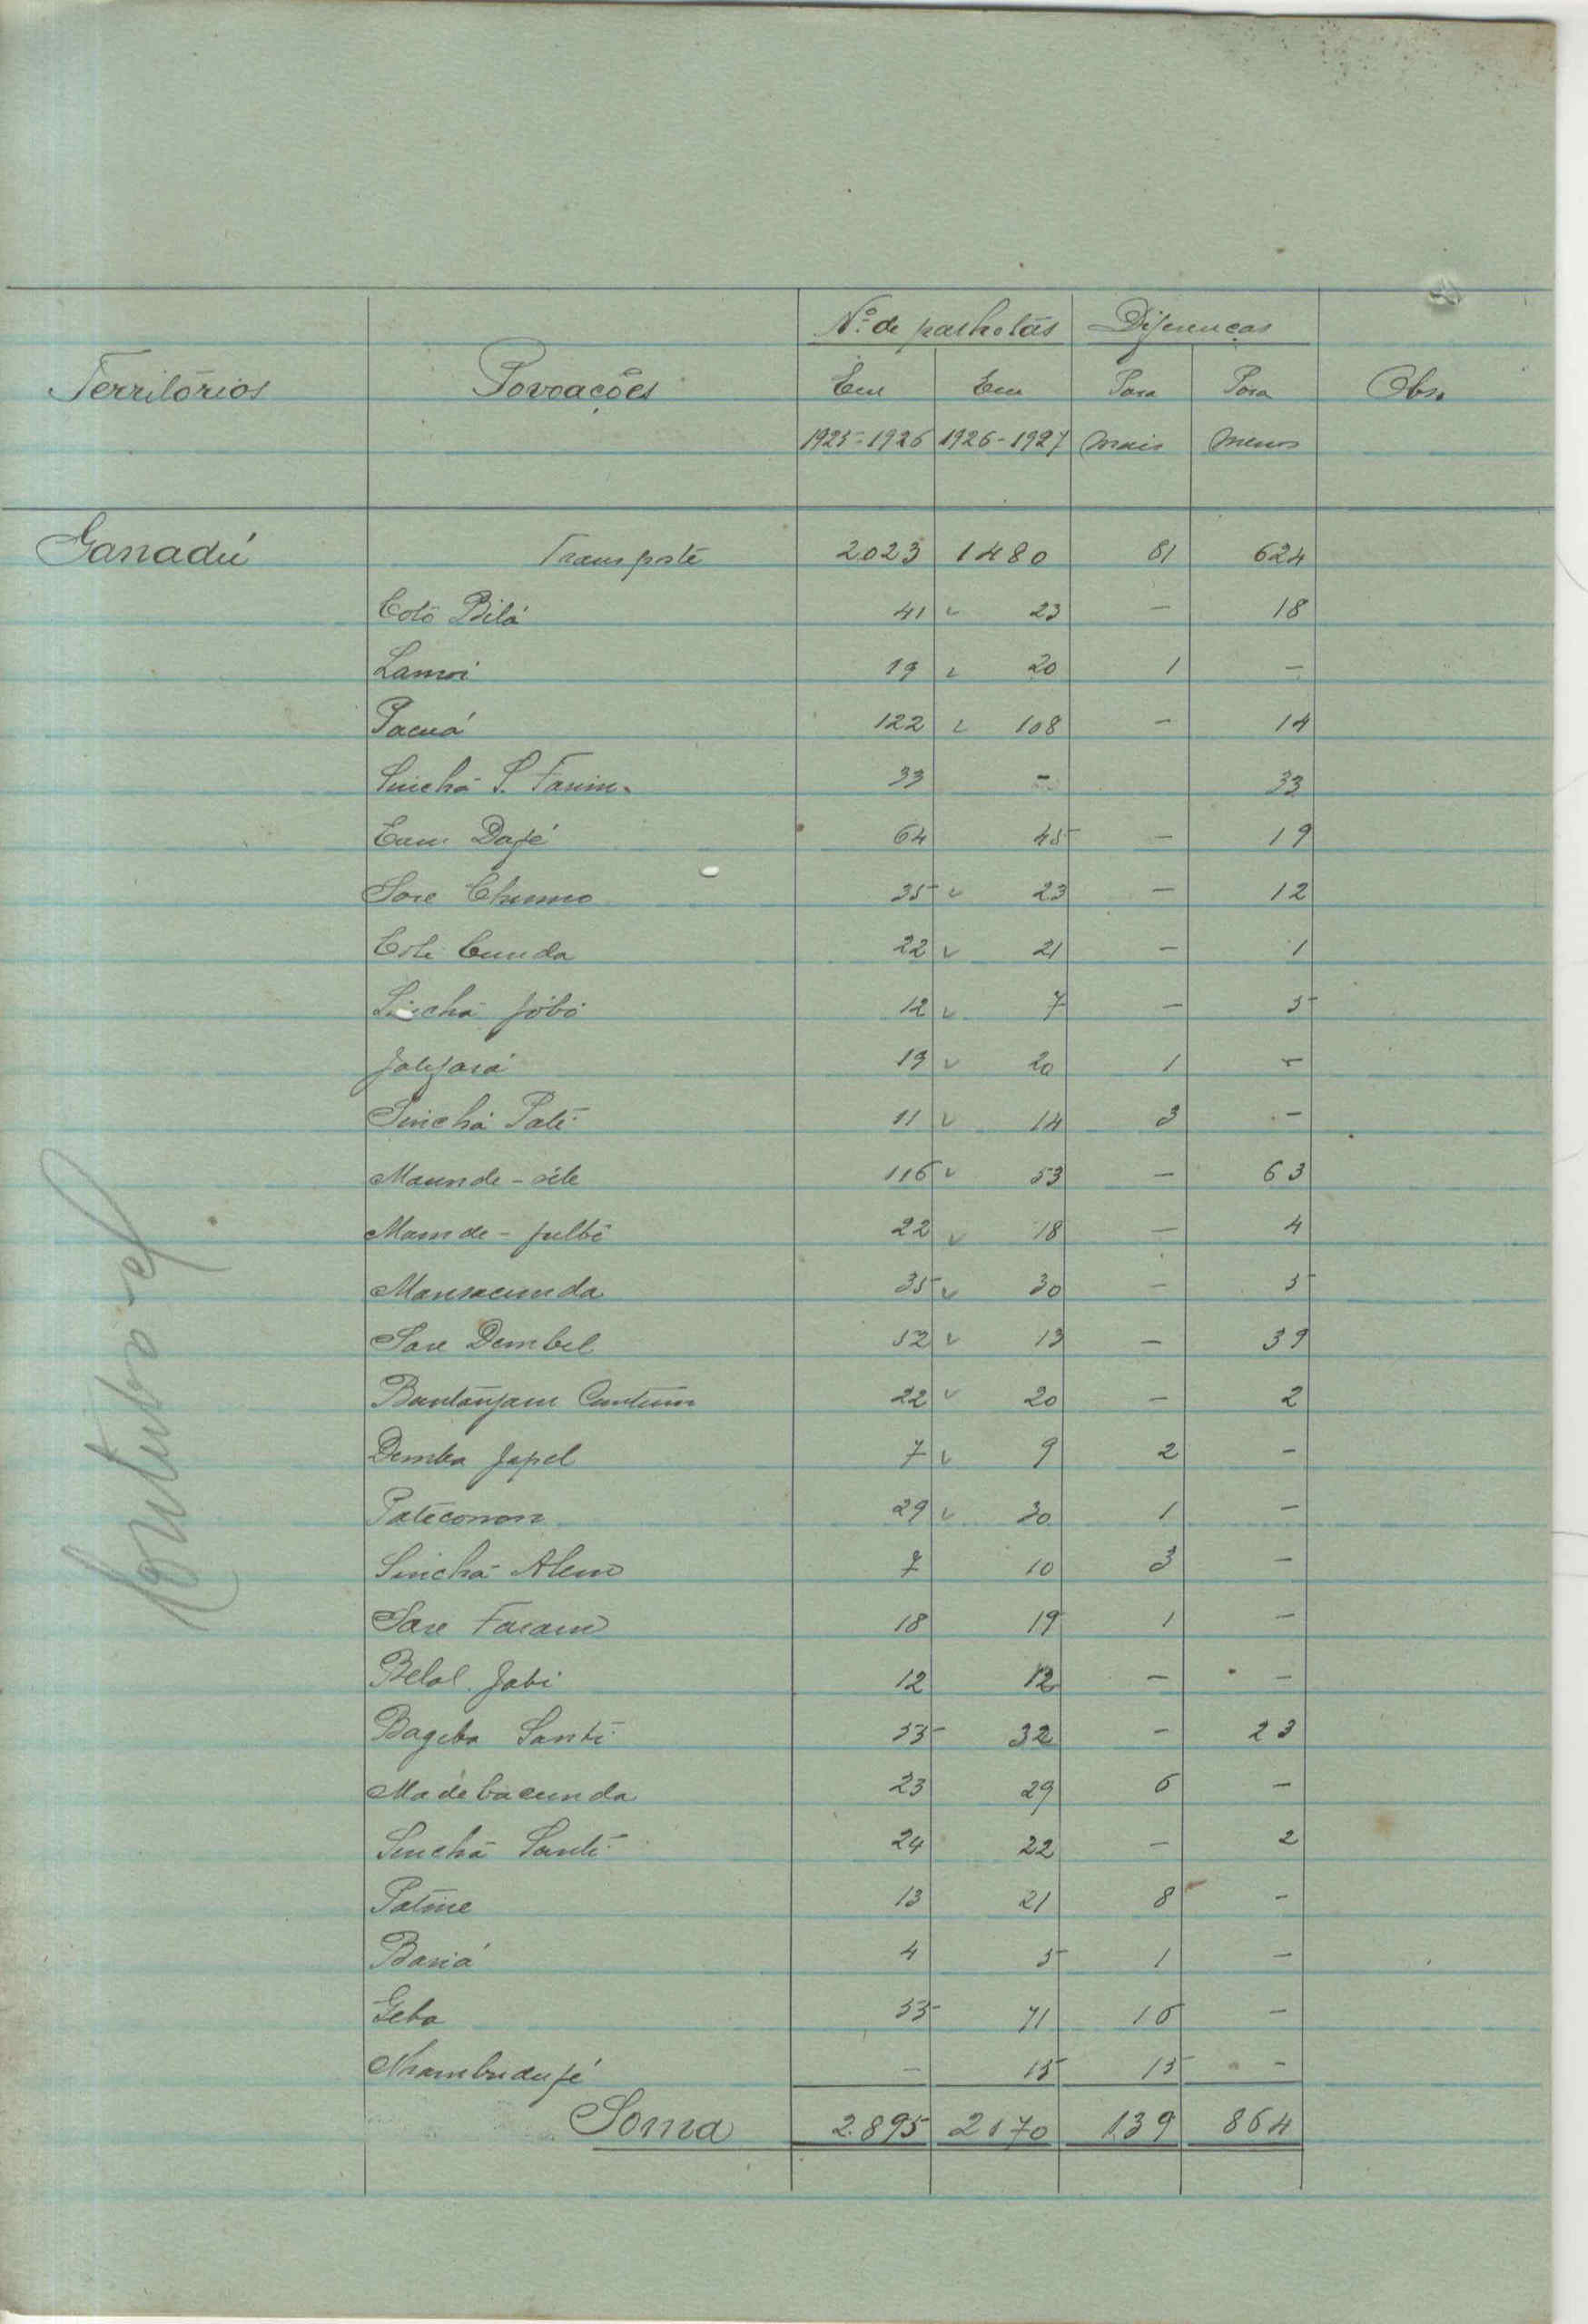 Nº de palhotas Diferenças
Territórios Povoações Em Em Para Para Obs.
1925-1926 1926-1927 mais menos
Ganadú Transporte 2023 1480 81 624
Colô Bilá 41 23 — 18
Lamoi 19 20 1 —
Pacuá 122 108 — 14
Sinchã S. Farim 33 - 33
Dafé 64 45 — 19
Sare Chumo 35 23 — 12
Coli Cunda 22 21 — 1
Sinchã Jóbó 12 7 — 5
19 20 1 —
Sinchã Paté 11 14 3 —
Maunde - sêle 116 53 — 63
Maunde - fulbê 22 18 — 4
Mansacunda 35 30 — 5
Sare Dembel 52 13 — 39
Bantanjam Cuntum 22 20 — 2
Demba Japel 7 9 2 —
Patéconon 29 30 1 —
Sinchã Aleno 7 10 3 —
Sare 18 19 1 —
Belal Jabi 12 12 — —
Bageba Santi 55 32 — 23
Madébacunda 23 29 6 —
Sinchã Santi 24 22 — 2
Patine 13 21 8 —
Bariá 4 5 1 —
Geba 55 71 16 —
— 15 15 —
Soma 2.895 2170 139 864